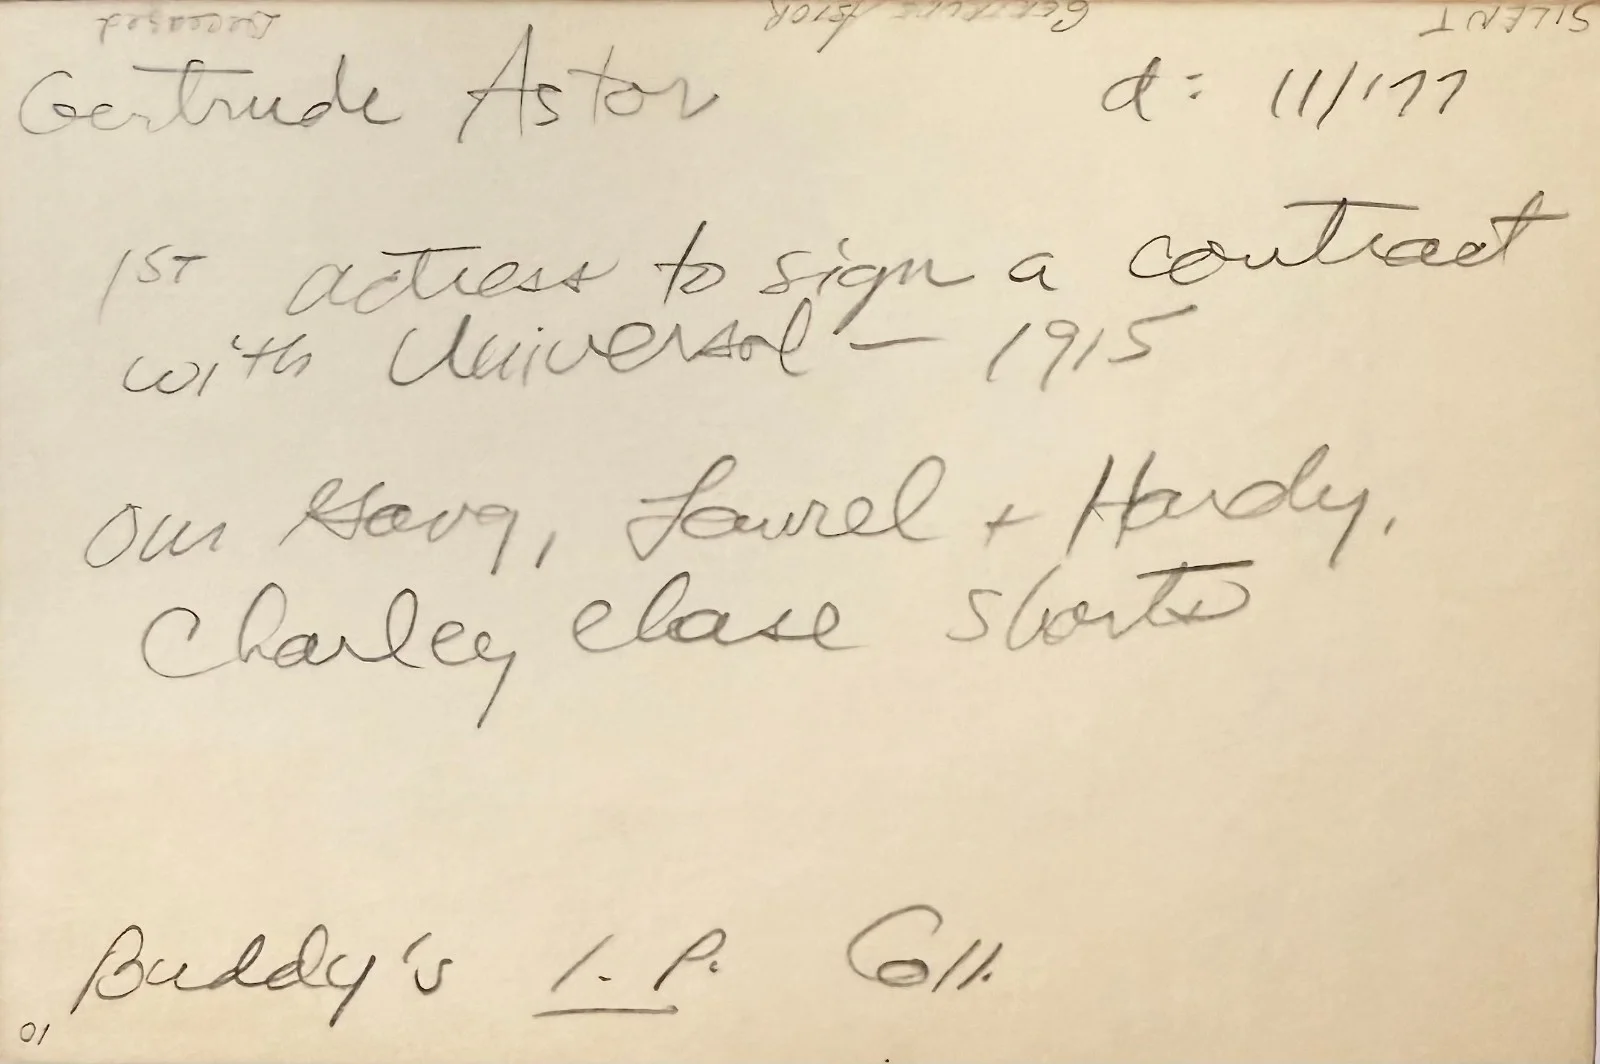 Deceased GERTRUDE ASTOR SILENT
Gertrude Astor d: 11/'77
1ST actress to sign a contract
with Universal — 1915
Our Gang, Laurel + Hardy,
Charley Chase shorts
Buddy's I. P. Coll.
01